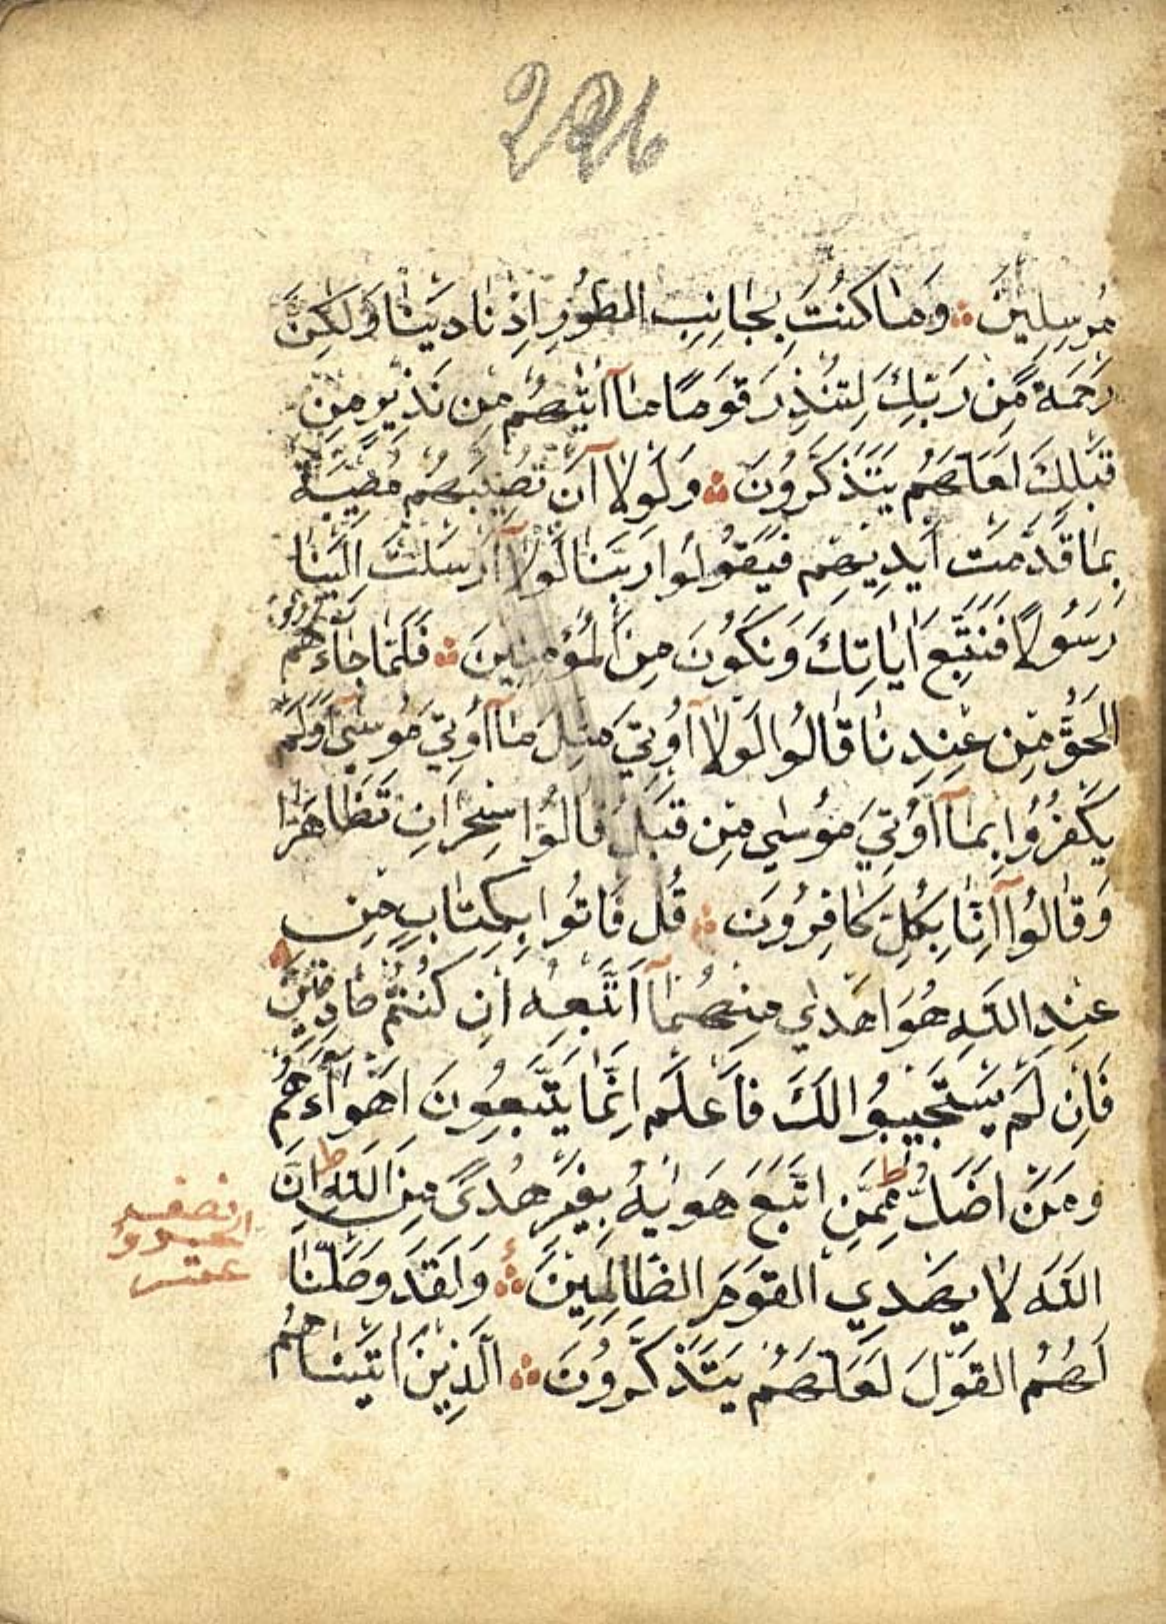 226
مُرسِلِينَ ۞ وَمَا كُنْتَ بِجَانِبِ الطُّورِ اِذْ نَادَيْنَا وَلَكِنْ
رَحْمَةً مِّن رَبِّكَ لِتُنْذِرَ قَوْمًا مَا آتٰيهُم مِن نَذِيرٍ مِن
قَبْلِكَ لَعَلَّهُم يَتَذَكَّرُونَ ۞ وَلَولَا آن تُصِيبَهُم مُصِيبَةٌ
بِمَا قَدَّمَت اَيْدِيهِم فَيَقُولُوا رَبَّنَا لَولَا آ اَرسَلتَ اِلَيْنَا
رَسُولًا فَنَتَّبِعَ اٰيَاتِكَ وَنَكُونَ مِنَ الْمُؤْمِنِينَ ۞ فَلَمَّا جَاءَهُم
الحَقُّ مِن عِنْدِنَا قَالُوا لَولَا آ اُوتِيَ مِثلَ مَا آ اُوتِيَ مُوسٰى اَوَلَم
يَكْفُرُوا بِمَا آ اُوتِيَ مُوسٰى مِن قَبلُ قَالُوا سِحْرَانِ تَظَاهَرَا
وَقَالُوا آ اِنَّا بِكُلٍّ كَافِرُونَ ۞ قُل فَاتُوا بِكِتَابٍ مِن
عِنْدِ اللّٰهِ هُوَ اَهدٰي مِنهُمَا آ اَتَّبِعهُ اِن كُنتُم صَادِقِينَ
فَاِن لَم يَسْتَجِيبُوا لَكَ فَاعلَم اَنَّمَا يَتَّبِعُونَ اَهْوَآءَهُم
وَمَن اَضَلُّ مِمَّنِ اتَّبَعَ هَوٰيهُ بِغَيرِ هُدًى مِنَ اللّٰهِ ط اِنَّ
اللّٰهَ لَا يَهدِي القَومَ الظَّالِمِينَ ۞ وَلَقَد وَصَّلنَا
لَهُمُ القَولَ لَعَلَّهُم يَتَذَكَّرُونَ ۞ الَّذِينَ اٰتَينَاهُم
نصف
الجزو
عشر